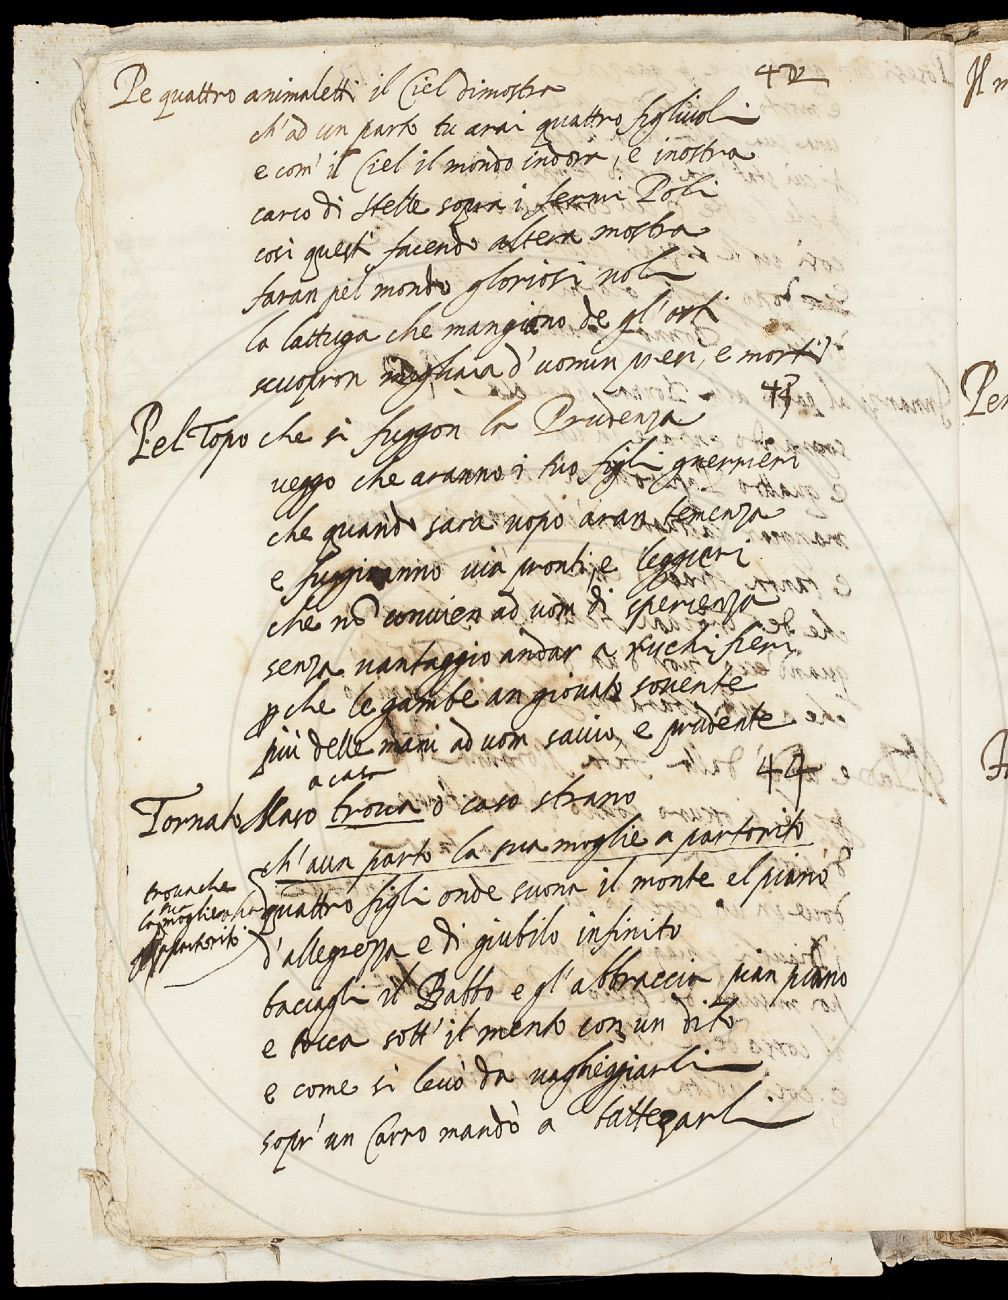 42
Pe quattro animaletti il Ciel dimostra
ch'ad un parto tu arai quattro figliuoli
e com' il Ciel il mondo indora, e inostra
carco di stelle sopra i fermi Poli
cosi questi facendo altera mostra
faran pel mondo gloriosi voli
la lattuga che mangiono de gl'orti
scuopron migliaia d'uomin presi, e morti
43
Pel Topo che si fuggon la Prudenza
veggo che aranno i tuo figli guerrieri
che quando sarà uopo aran temenza
e fuggiranno via pronti, e leggieri
che nõ convien ad uom di sperienza
senza vantaggio andar a rischi fieri
p che le gambe an giovato sovente
più delle mani ad uom savio, e prudente
44
a casa
Tornato Maso trova o caso strano
ch'a un parto la sua moglie a partorito
trova che
la sua moglie ha
partorito
quattro figli onde suona il monte el piano
d'allegrezza e di giubilo infinito
baciagli il Babbo e gl'abbraccia pian piano
e tocca sott'il mento con un dito
e come si levò da vagheggiarli
sopr'un Carro mandò a battezarli